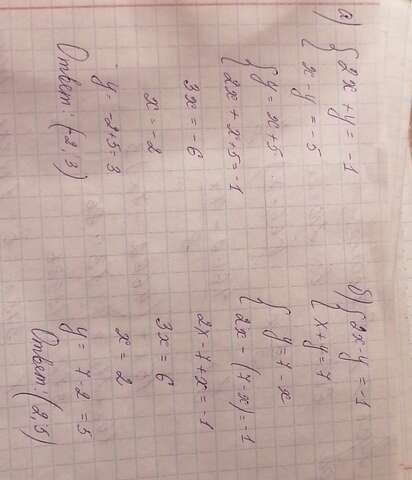 а) { 2x + y = -1
{ x - y = -5
{ y = x + 5
{ 2x + x + 5 = -1
3x = -6
x = -2
y = -2 + 5 = 3
Ответ: (-2; 3)
б) { 2x - y = -1
{ x + y = 7
{ y = 7 - x
{ 2x - (7 - x) = -1
2x - 7 + x = -1
3x = 6
x = 2
y = 7 - 2 = 5
Ответ: (2; 5)